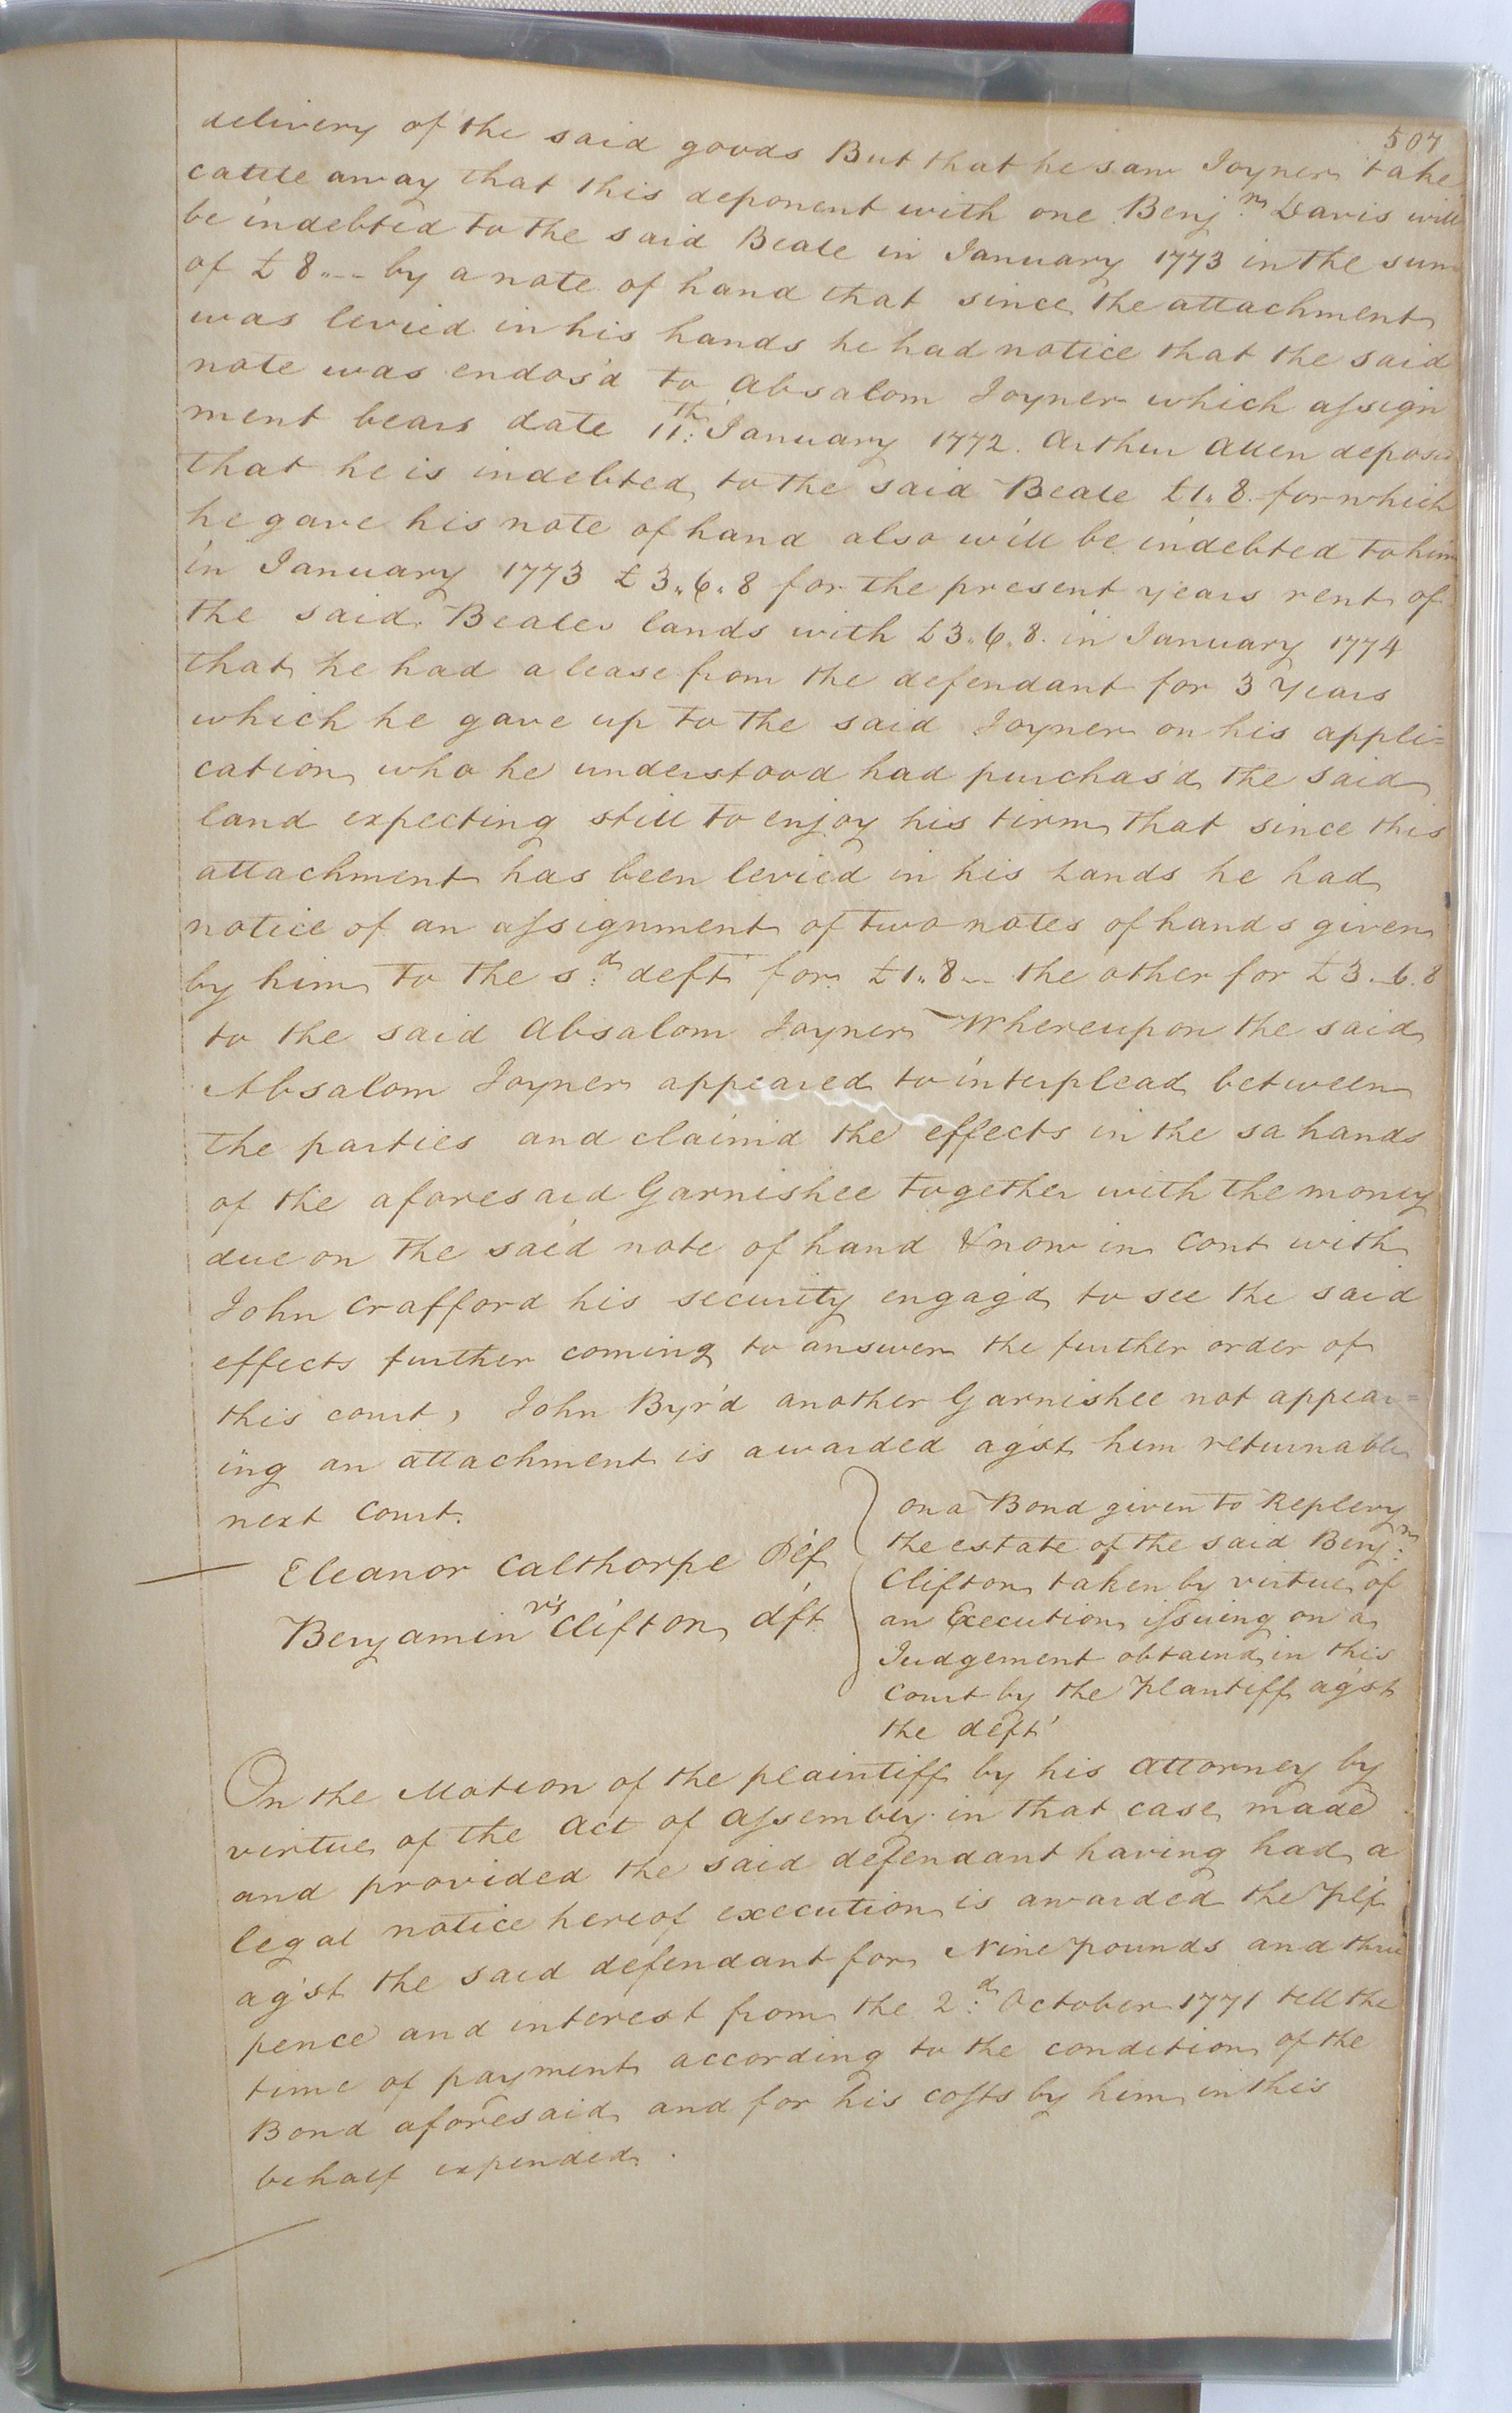 507
delivery of the said goods But that he saw Joyner take
cattle away that this deponent with one Benj:n Davis will
be indebted to the said Beale in January 1773 in the sum
of £ 8.. -- by a note of hand that since the attachment
was levied in his hands he had notice that the said
note was endos'd to Absalom Joyner which assign
ment bears date 11:th January 1772. Arthur Allen deposes
that he is indebted to the said Beale £1.. 8. for which
he gave his note of hand also will be indebted to him
in January 1773 £ 3..6..8 for the present years rent of
the said Beales lands with £3..6..8. in January 1774
that he had a lease from the defendant for 3 Years
which he gave up to the said Joyner on his appli=
cation who he understood had purchas'd the said
land expecting still to enjoy his tirm that since this
attachment has been levied in his hands he had
notice of an assignment of two notes of hands given
by him to the s:d deft for £1..8.. - the other for £3..6.8
to the said Absalom Joyner Whereupon the said
Absalom Joyner appeared to interplead between
the parties and claim'd the effects in the sa hands
of the aforesaid Garnishee together with the money
due on the said note of hand & now in Cont with
John Crafford his security engag'd to see the said
effects further coming to answer the further order of
this court, John Byr'd another Garnishee not appear=
ing an attachment is awarded ag'st him returnable
next Court.
Eleanor Calthorpe Plf
vs
Benjamin Clifton dft
on a Bond given to Replevy
the estate of the said Benj:n
Clifton taken by virtue of
an Execution issuing on a
Judgement obtaind in this
Court by the Plantiff ag'st
the deft'
On the Motion of the plaintiff by his Attorney by
virtue of the Act of Assembly in that case made
and provided the said defendant having had a
legal notice hereof execution is awarded the Plf
ag'st the said defendant for Nine pounds and three
pence and interest from the 2:d October 1771 tell the
time of payment according to the condition of the
Bond aforesaid and for his costs by him in this
behalf expended.